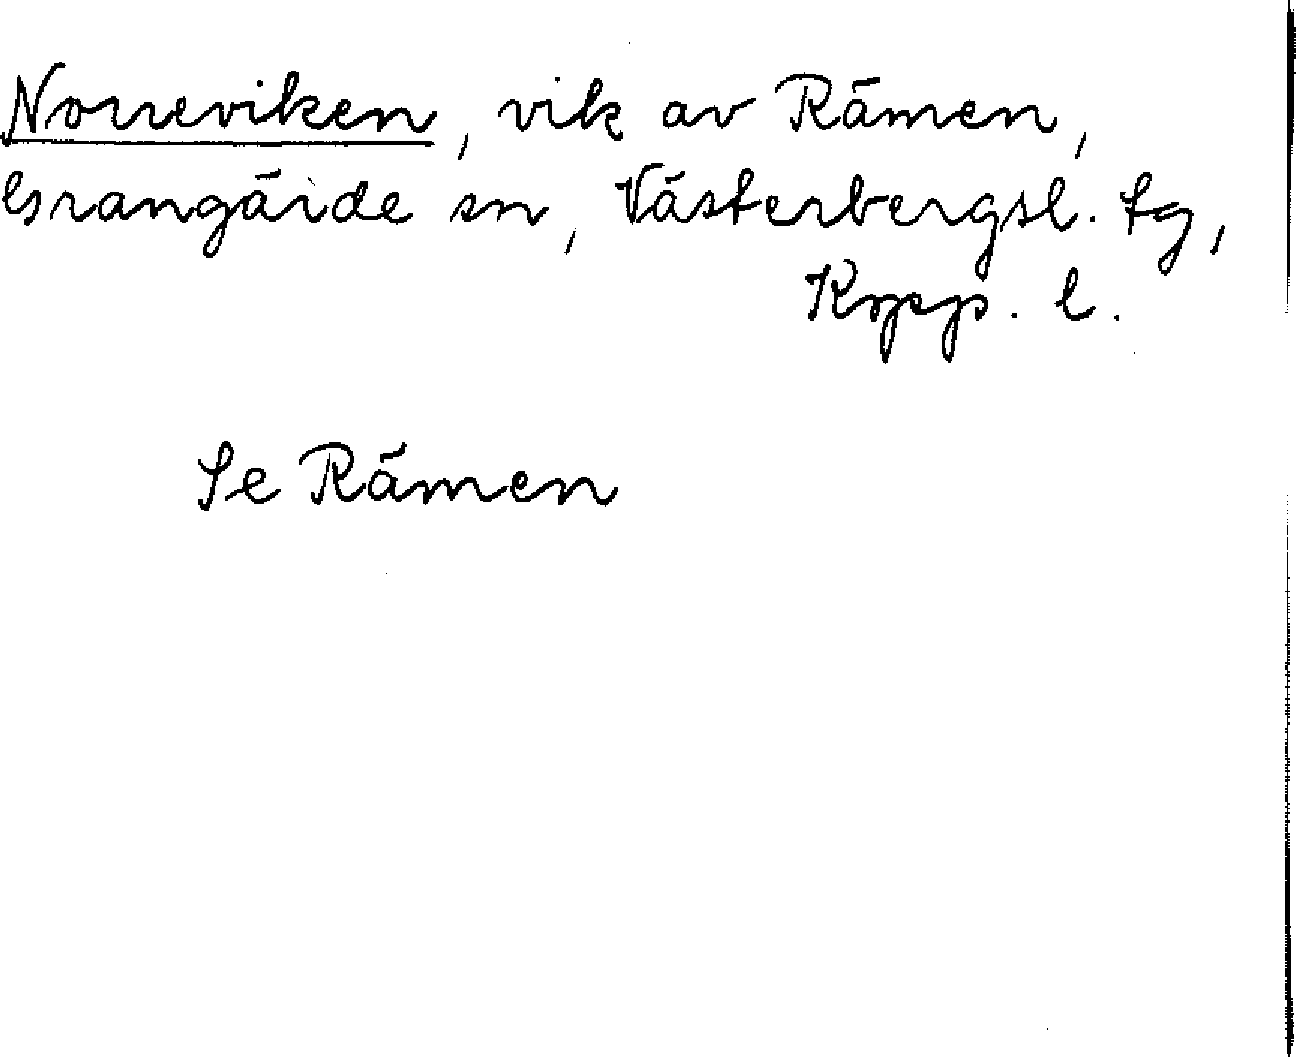 Norreviken, vik av Rämen,
Grangärde sn, Västerbergsl. tg,
Kopp. l.
Se Rämen